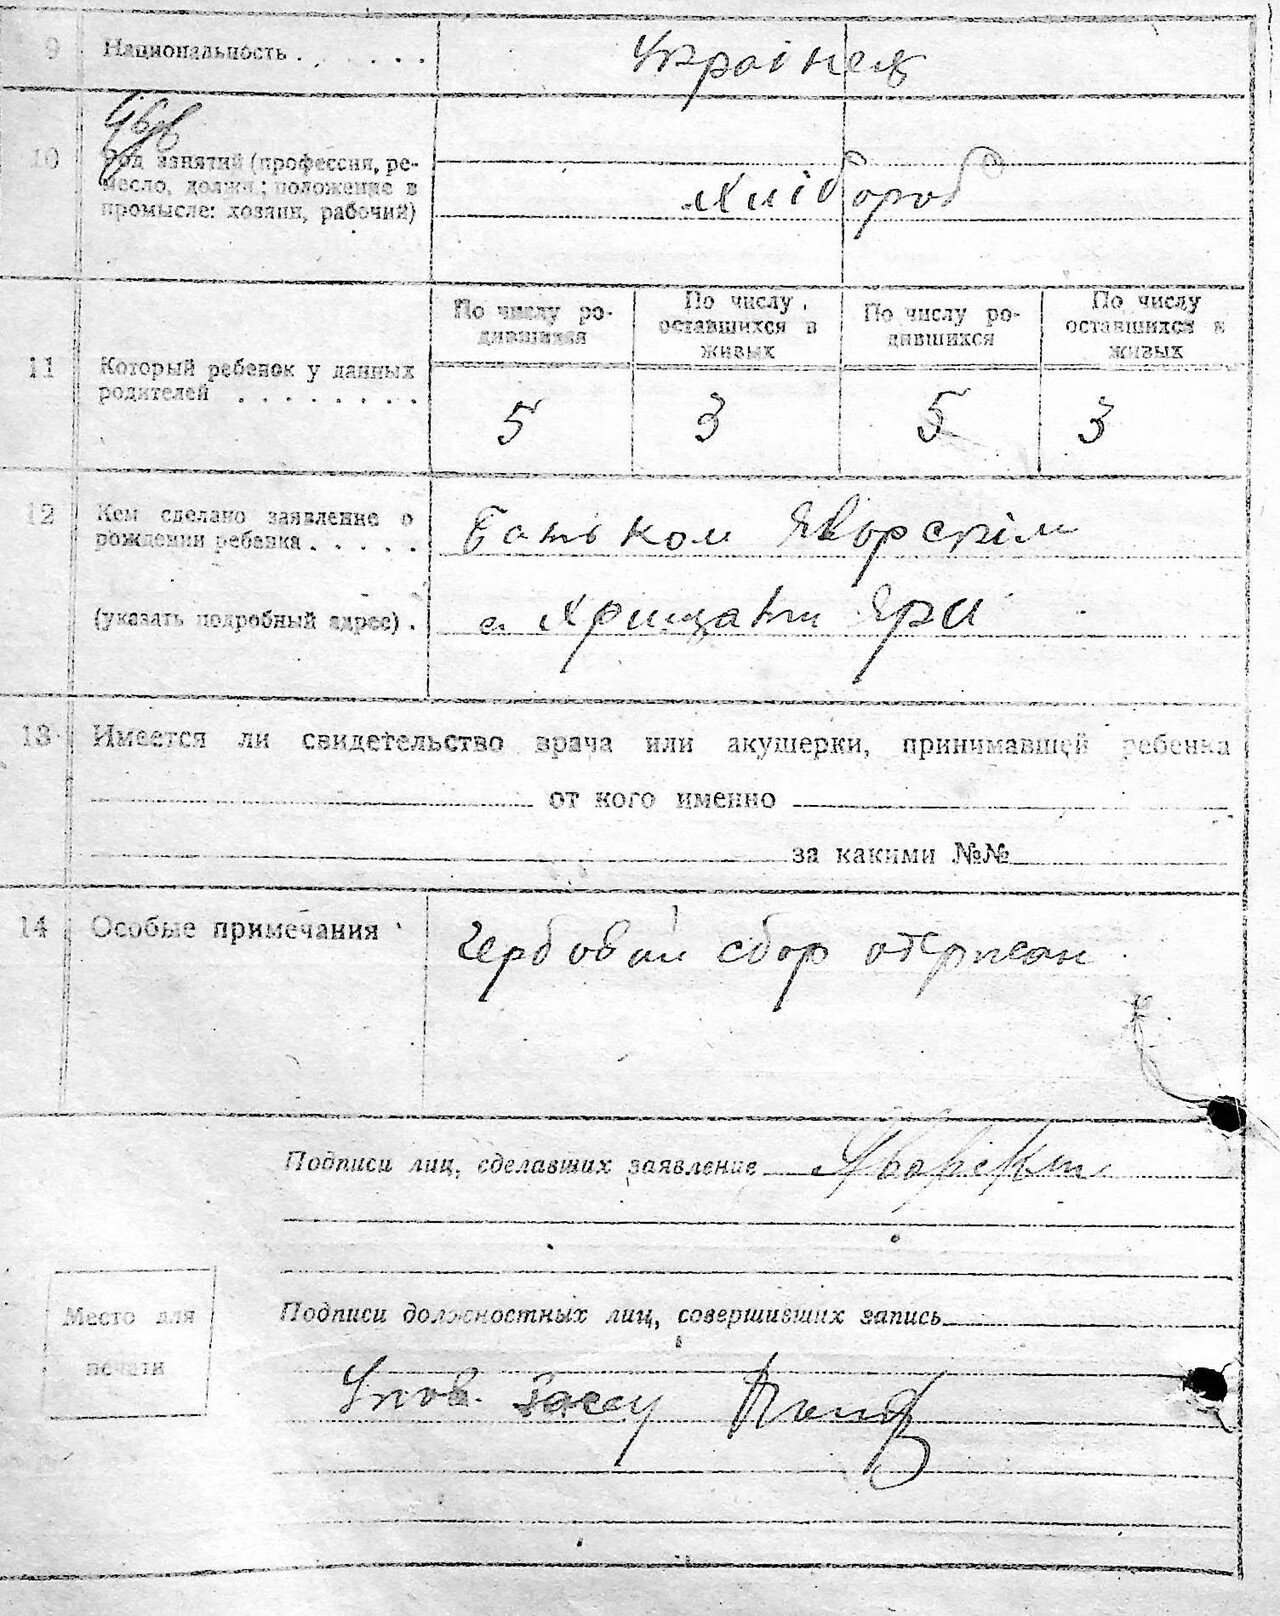 9 Национальность . . . . . . Українець
10 Род занятий (профессия, ре-
месло, должн.; положение в
промысле: хозяин, рабочий)
хлібороб
По числу ро-
дившихся
По числу
оставшихся в
живых
По числу ро-
дившихся
По числу
оставшихся в
живых
11 Который ребенок у данных
родителей . . . . . . . .
5 3 5 3
12 Кем сделано заявление о
рождении ребенка . . . . .
Батьком Яворскім
(указать подробный адрес) .
с. Хрищаті Яри
13 Имеется ли свидетельство врача или акушерки, принимавшей ребенка
от кого именно
за какими №№
14 Особые примечания
Гербовий сбор
Подписи лиц, сделавших заявление Яворский
Подписи должностных лиц, совершивших запись
Место для
печати
Упов. Загсу